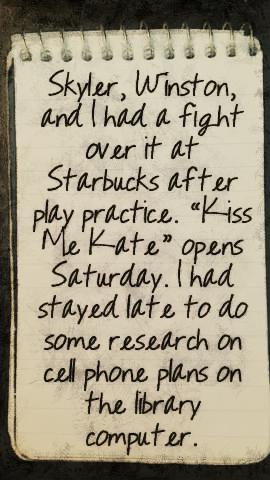 Skyler, Winston,
and I had a fight
over it at
Starbucks after
play practice. "Kiss
Me Kate" opens
Saturday. I had
stayed late to do
some research on
cell phone plans on
the library
computer.